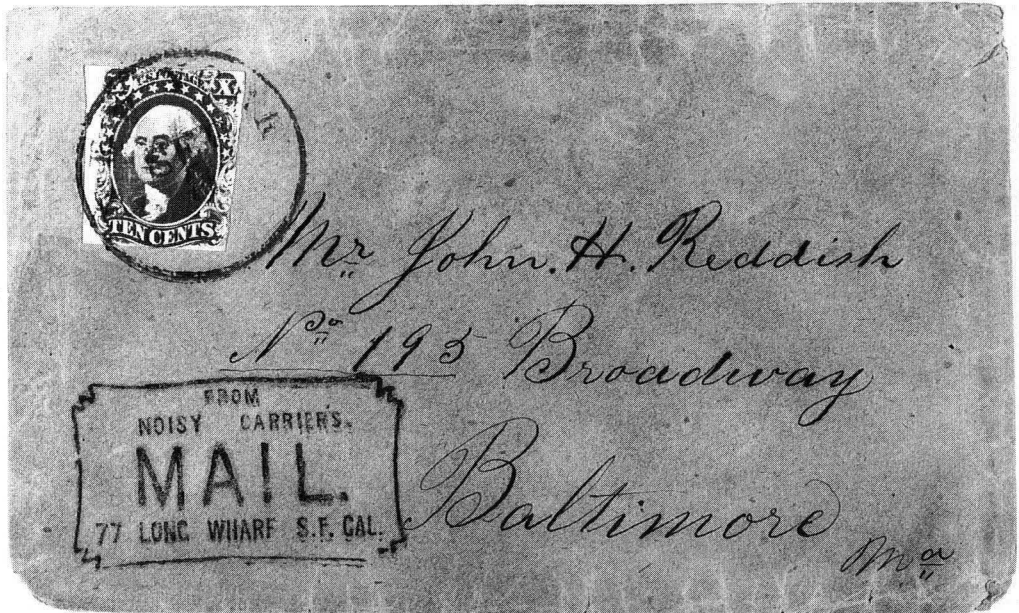 X
TEN CENTS
Mr John. H. Reddish
No 195 Broadway
Baltimore
FROM
NOISY CARRIER'S.
MAIL.
77 LONG WHARF S.F. CAL.